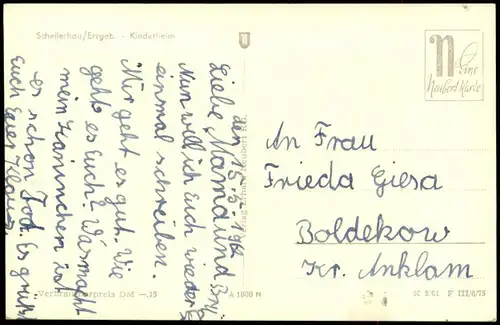 Schellerhau/Erzgeb. - Kinderheim
Eine
Neubert Karte
den 15.5.1962
Liebe Mama und
Nun will ich Euch wieder
einmal schreiben.
Mir geht es gut. Wie
geht es Euch? Was macht
mein Kaninchen ist
es schon Tod. Es grüßt
Euch Euer Klaus.
An Frau
Frieda Giesa
Boldekow
Kr. Anklam
Verbraucherpreis DM —,15
A 1930 N
K 5/61 F III/6/75